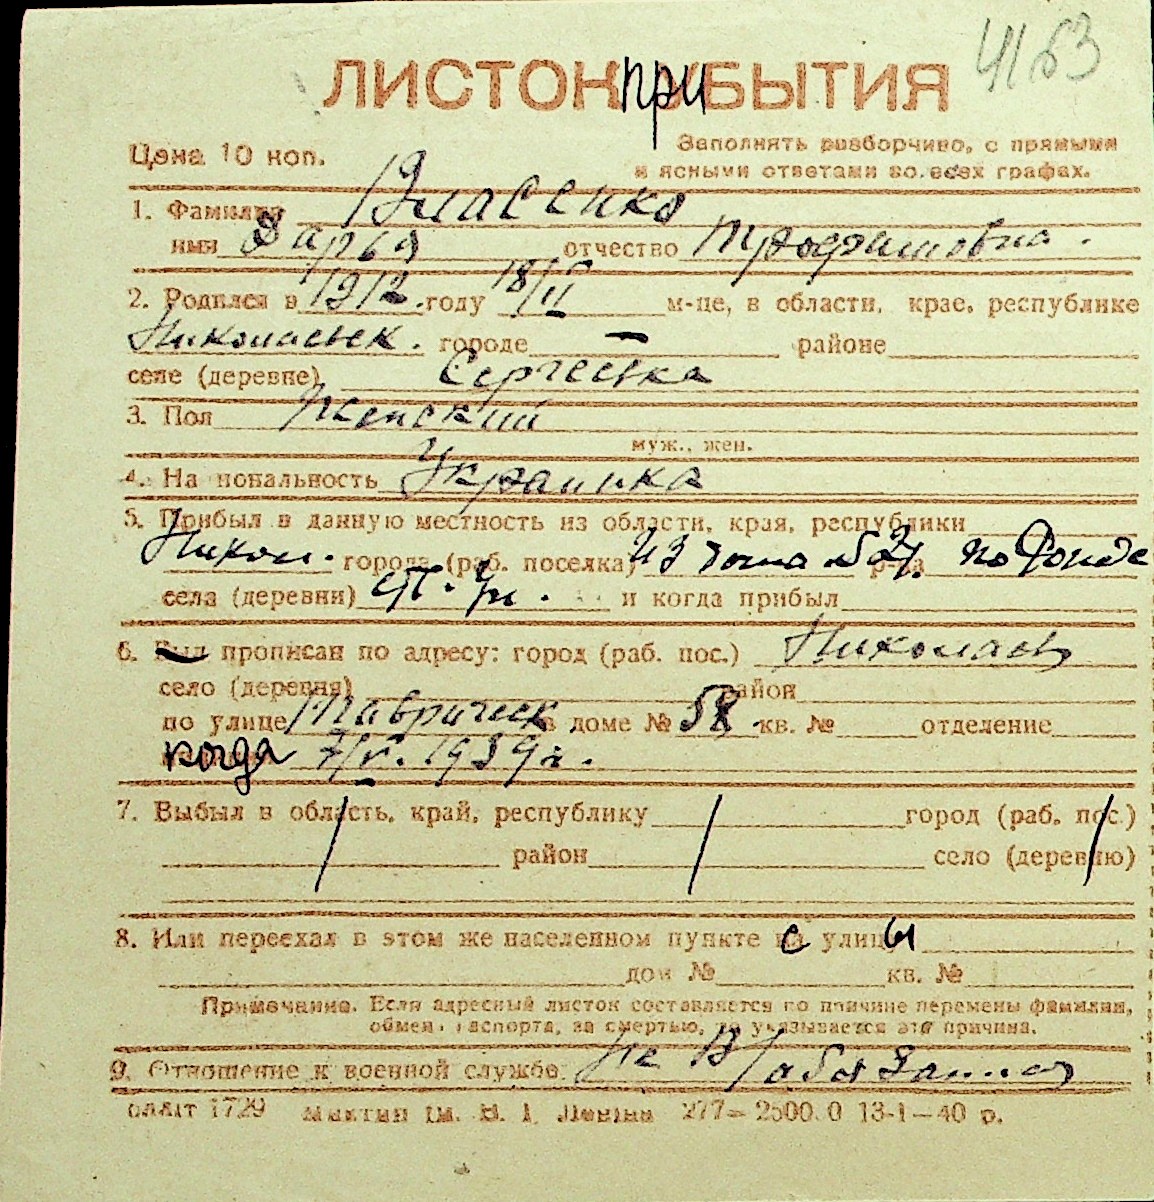 4163
ЛИСТОК при БЫТИЯ
Цена 10 коп.
Заполнять разборчиво, с прямыми
и ясными ответами во всех графах.
1. Фамилия Власенко
имя Дарья отчество Трофимовна.
2. Родился в 1912 году 18/II м-це, в области, крае, республике
Николаевск. городе — районе
селе (деревне) Сергеевка
3. Пол Женский
муж., жен.
4. Национальность Украинка
5. Прибыл в данную местность из области, края, республики
Никол. города (раб. поселка) Из р-на по
села (деревни) и когда прибыл
6. Был прописан по адресу: город (раб. пос.) Николаев
село (деревня) район
по улице Таврическ в доме № 58 кв. № отделение
когда 7/V. 1939 г.
7. Выбыл в область, край, республику город (раб. пос.)
район село (деревню)
8. Или переехал в этом же населенном пункте с улицы
дом № кв. №
Примечание. Если адресный листок составляется по причине перемены фамилии,
обмена паспорта, за смертью, то указывается эта причина.
9. Отношение к военной службе Не В/обязанная
1729 Ім. В. І. Леніна 277— 13-1—40 р.